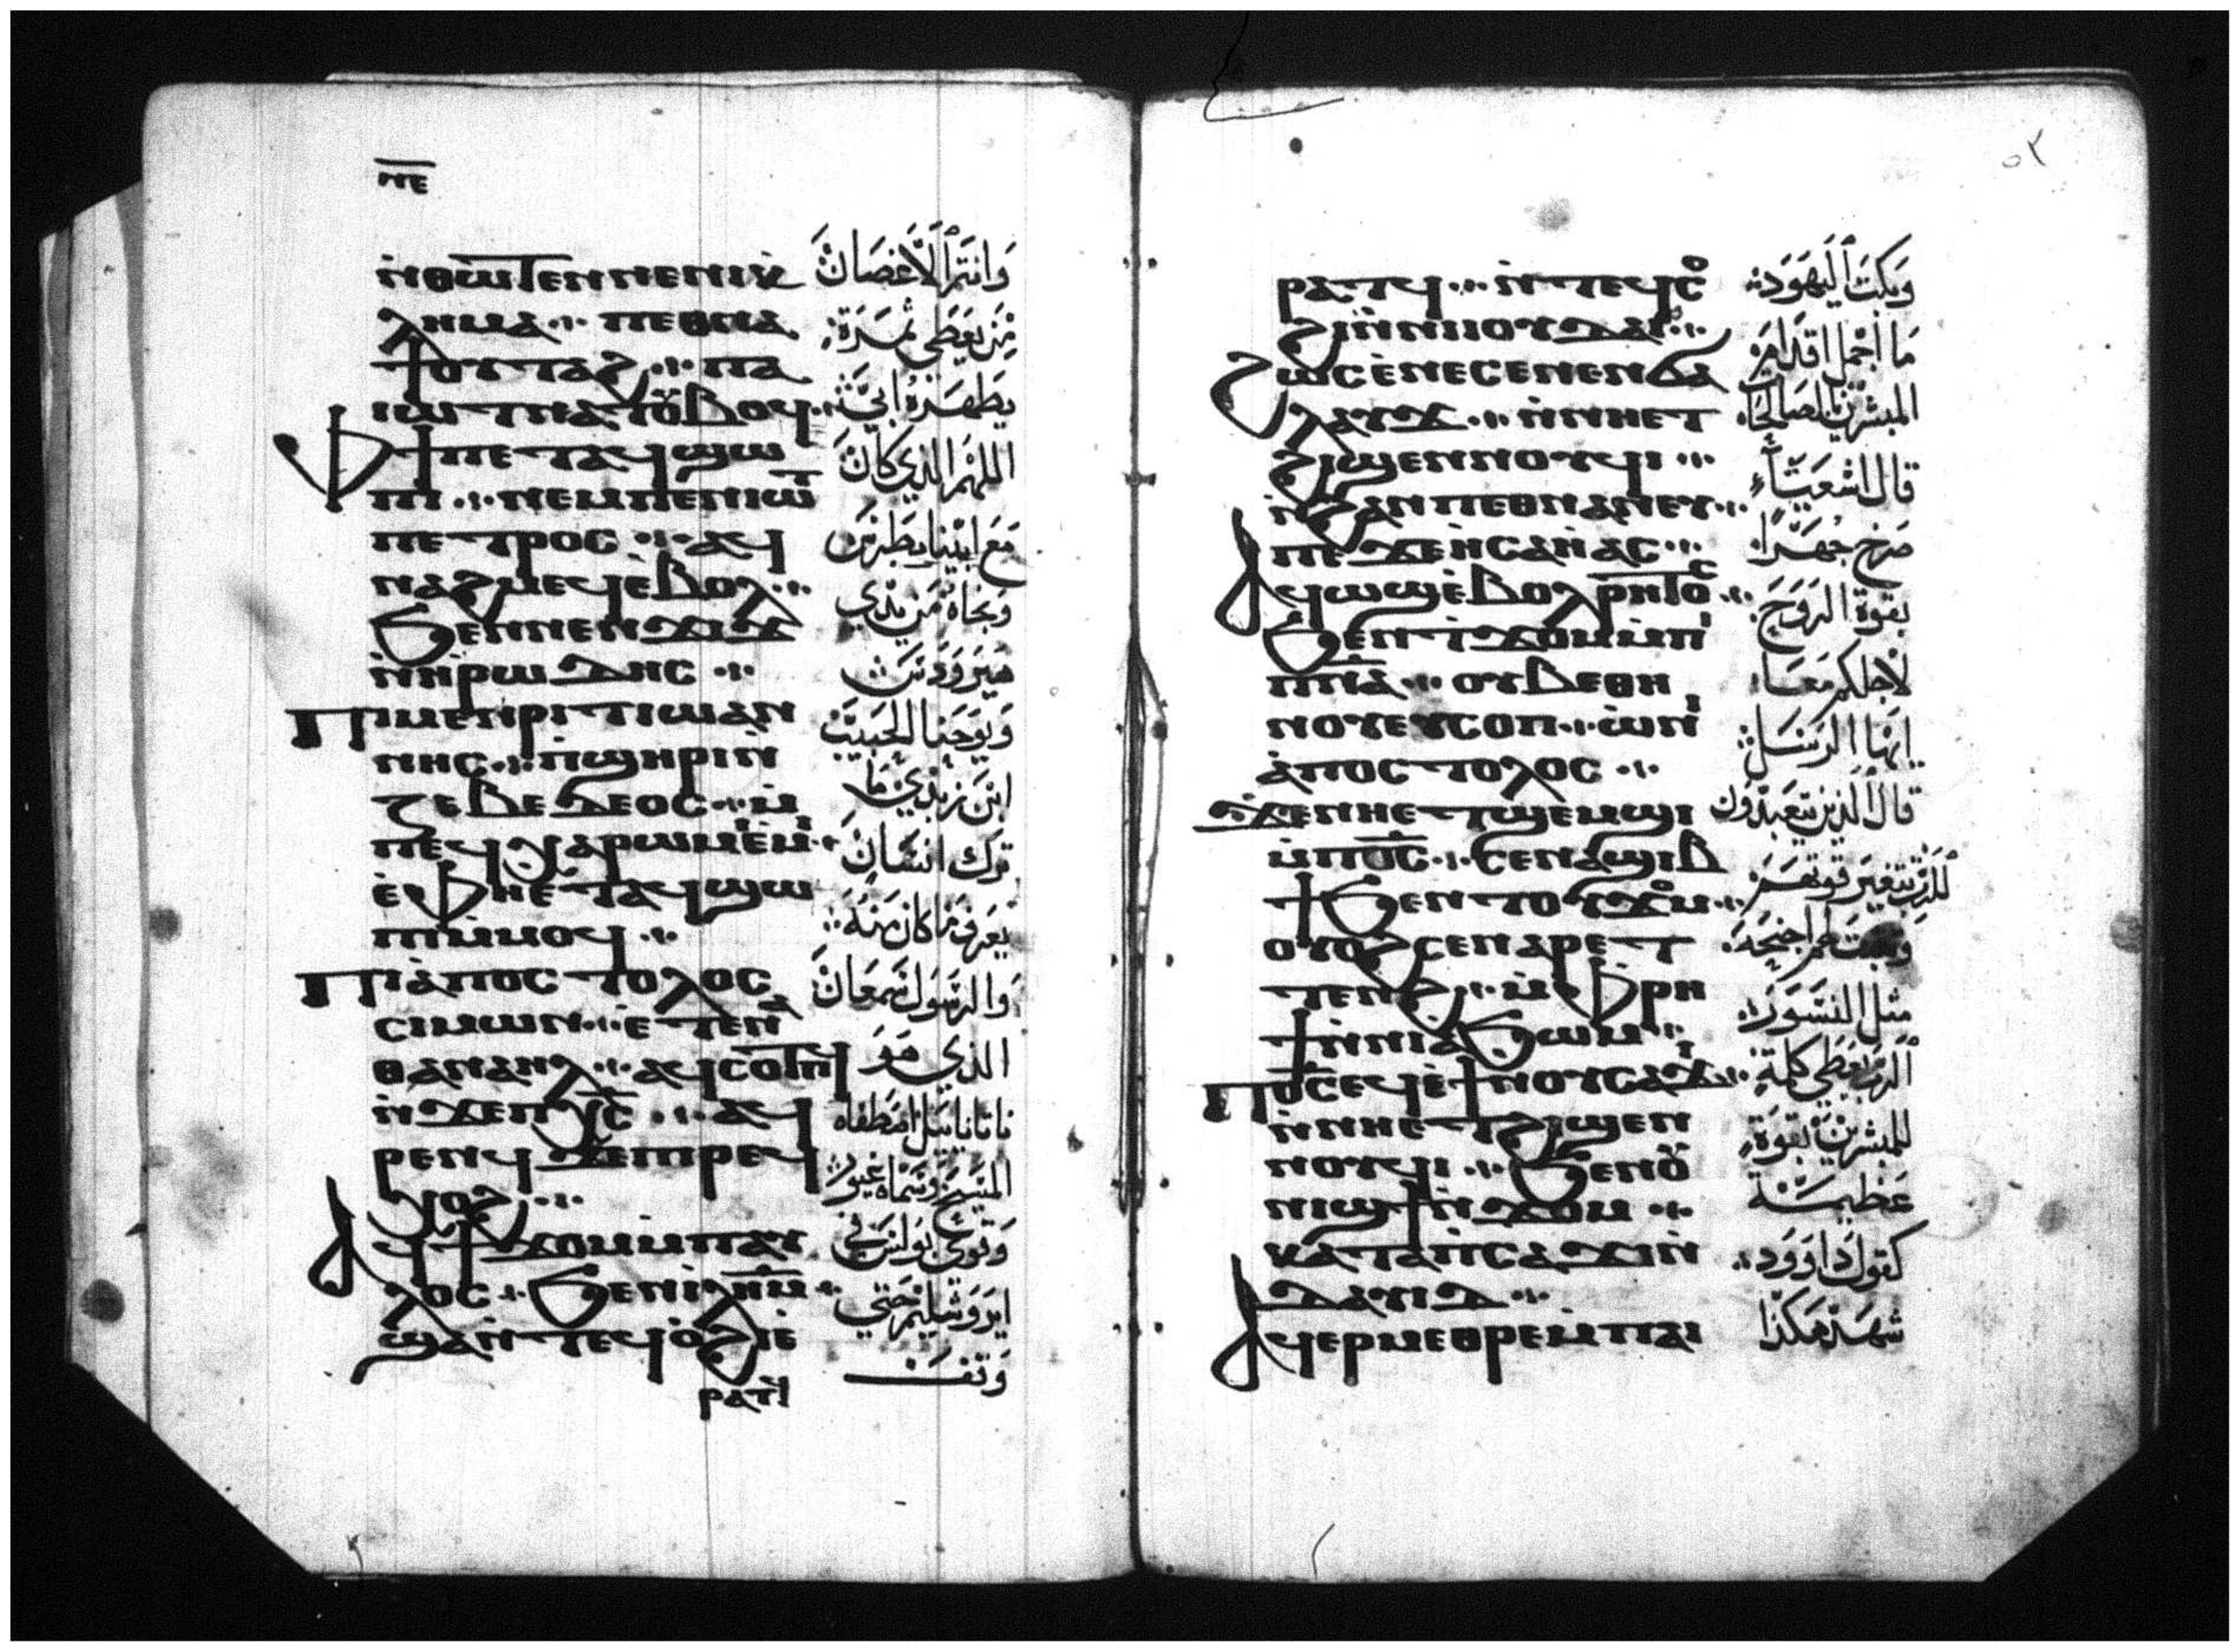 ⲛⲉ
ⲛ̀ⲑⲱⲧⲉⲛ ⲛⲉ ⲛⲓⲕ̀
ⲗⲏⲙⲁ ⲡⲉⲑⲛⲁ
ϯⲟⲩⲧⲁϩ ⲡⲁ
ⲓⲱⲧ ⲛⲁⲧⲟⲩⲃⲟϥ
ⲫϯ ⲡⲉⲧⲁϥϣⲱ
ⲡⲓ ⲛⲉⲙ ⲡⲉⲛⲓⲱⲧ
ⲡⲉⲧⲣⲟⲥ ⲁϥ
ⲛⲁϩⲙⲉϥ ⲉ̀ⲃⲟⲗ
ϧⲉⲛ ⲛⲉⲛϫⲓϫ
ⲛ̀ⲏⲣⲱⲇⲏⲥ
ⲡⲓⲙⲉⲛⲣⲓⲧ ⲓⲱⲁⲛ
ⲛⲏⲥ ⲡ̀ϣⲏⲣⲓ ⲛ̀
ⲍⲉⲃⲉⲇⲉⲟⲥ ⲙ̀
ⲡⲉϥⲭⲁ ⲣⲱⲙⲓ ⲉ̀ⲙⲓ
ⲉ̀ⲫⲏⲉⲧⲁϥϣⲱ
ⲡⲓ ⲙ̀ⲙⲟϥ
ⲡⲓⲁ̀ⲡⲟⲥⲧⲟⲗⲟⲥ
ⲥⲓⲙⲱⲛ ⲉ̀ⲧⲉ ⲛⲁ
ⲑⲁⲛⲁⲏⲗ ⲁϥⲥⲟⲧⲡϥ
ⲛ̀ϫⲉ ⲡⲭ̅ⲥ̅ ⲁϥ
ⲣⲉⲛϥ ϫⲉ ⲡⲓⲣⲉϥ
ⲭⲟϩ
ⲁϥϯϫⲟⲙ ⲙ̀ⲡⲁⲩ
ⲗⲟⲥ ϧⲉⲛ ⲓ̅ⲗ̅ⲏ̅ⲙ̅
ϣⲁⲛ̀ⲧⲉϥⲟ̀ϩⲓ ⲉ̀
ⲣⲁⲧϥ
وانتم الاغصان
من يعطي ثمرة
يطهره ابي
اللهم الذي كان
مع ابينا بطرس
ونجاه من يدي
هيرودس
ويوحنا الحبيب
ابن زبدي ما
ترك انسان
يعرف ما كان منه
والرسول سمعان
الذي هو
ناتانايل اصطفاه
المسيح وسماه غيور
وقوي بولس في
ايروشليم حتي
وقف
٥٢
ⲣⲁⲧϥ ⲛ̀ⲧⲉϥⲥⲟ
ϩⲓ ⲛ̀ⲛⲓⲓⲟⲩⲇⲁⲓ
ϩⲱⲥ ⲉ̀ⲛⲉⲥⲉ ⲛⲉⲛϭⲁ
ⲗⲁⲩϫ ⲛ̀ⲛⲏⲉⲧ
ϩⲓϣⲉⲛⲛⲟⲩϥⲓ
ⲛ̀ϩⲁⲛⲡⲉⲑⲛⲁⲛⲉⲩ
ⲡⲉϫⲉ ⲏ̀ⲥⲁⲏ̀ⲁⲥ
ⲁϥⲱϣ ⲉ̀ⲃⲟⲗ ⲣⲏⲧⲟⲥ
ϧⲉⲛ ϯϫⲟⲙ ⲙ̀ⲡⲓ
ⲡ̅ⲛ̅ⲁ̅ ⲟⲩⲃⲉ ⲑⲏ
ⲛⲟⲩ ⲉⲩⲥⲟⲡ ⲱ̀ ⲛⲓ
ⲁ̀ⲡⲟⲥⲧⲟⲗⲟⲥ
ϫⲉ ⲛⲏⲉⲧϣⲉⲙϣⲓ
ⲙ̀ⲡ̅ⲟ̅ⲥ̅ ⲥⲉⲛⲁϣⲓⲃ
ϯ ϧⲉⲛ ⲧⲟⲩϫⲟⲙ
ⲟⲩⲟϩ ⲥⲉⲛⲁⲣⲉⲧ
ⲧⲉⲛϩ ⲙ̀ⲫⲣⲏ
ϯ ⲛ̀ⲛⲓⲁϧⲱⲙ
ⲡ̅ⲟ̅ⲥ̅ ⲉϥⲉ̀ϯ ⲛⲟⲩⲥⲁϫⲓ
ⲛ̀ⲛⲏⲉⲧϩⲓϣⲉⲛ
ⲛⲟⲩϥⲓ ϧⲉⲛ ⲟⲩ
ⲛⲓϣϯ ⲛ̀ϫⲟⲙ
ⲕⲁⲧⲁ ⲡ̀ⲥⲁϫⲓ ⲛ̀
ⲇⲁⲩⲓⲇ
ⲁϥⲉⲣⲙⲉⲑⲣⲉ ⲙ̀ⲡⲁⲓ
وبكت اليهود
ما اجمل اقدام
المبشرين بالصالحات
قال اشعياء
صرخ جهرا
بقوة الروح
لاجلكم معا
ايها الرسل
قال الذين يتعبدون
للرب تتغير قوتهم
وتنبت لهم اجنحه
مثل النسور
الرب يعطي كلمة
للمبشرين بقوة
عظيمة
كقول داوود
شهد هكذا